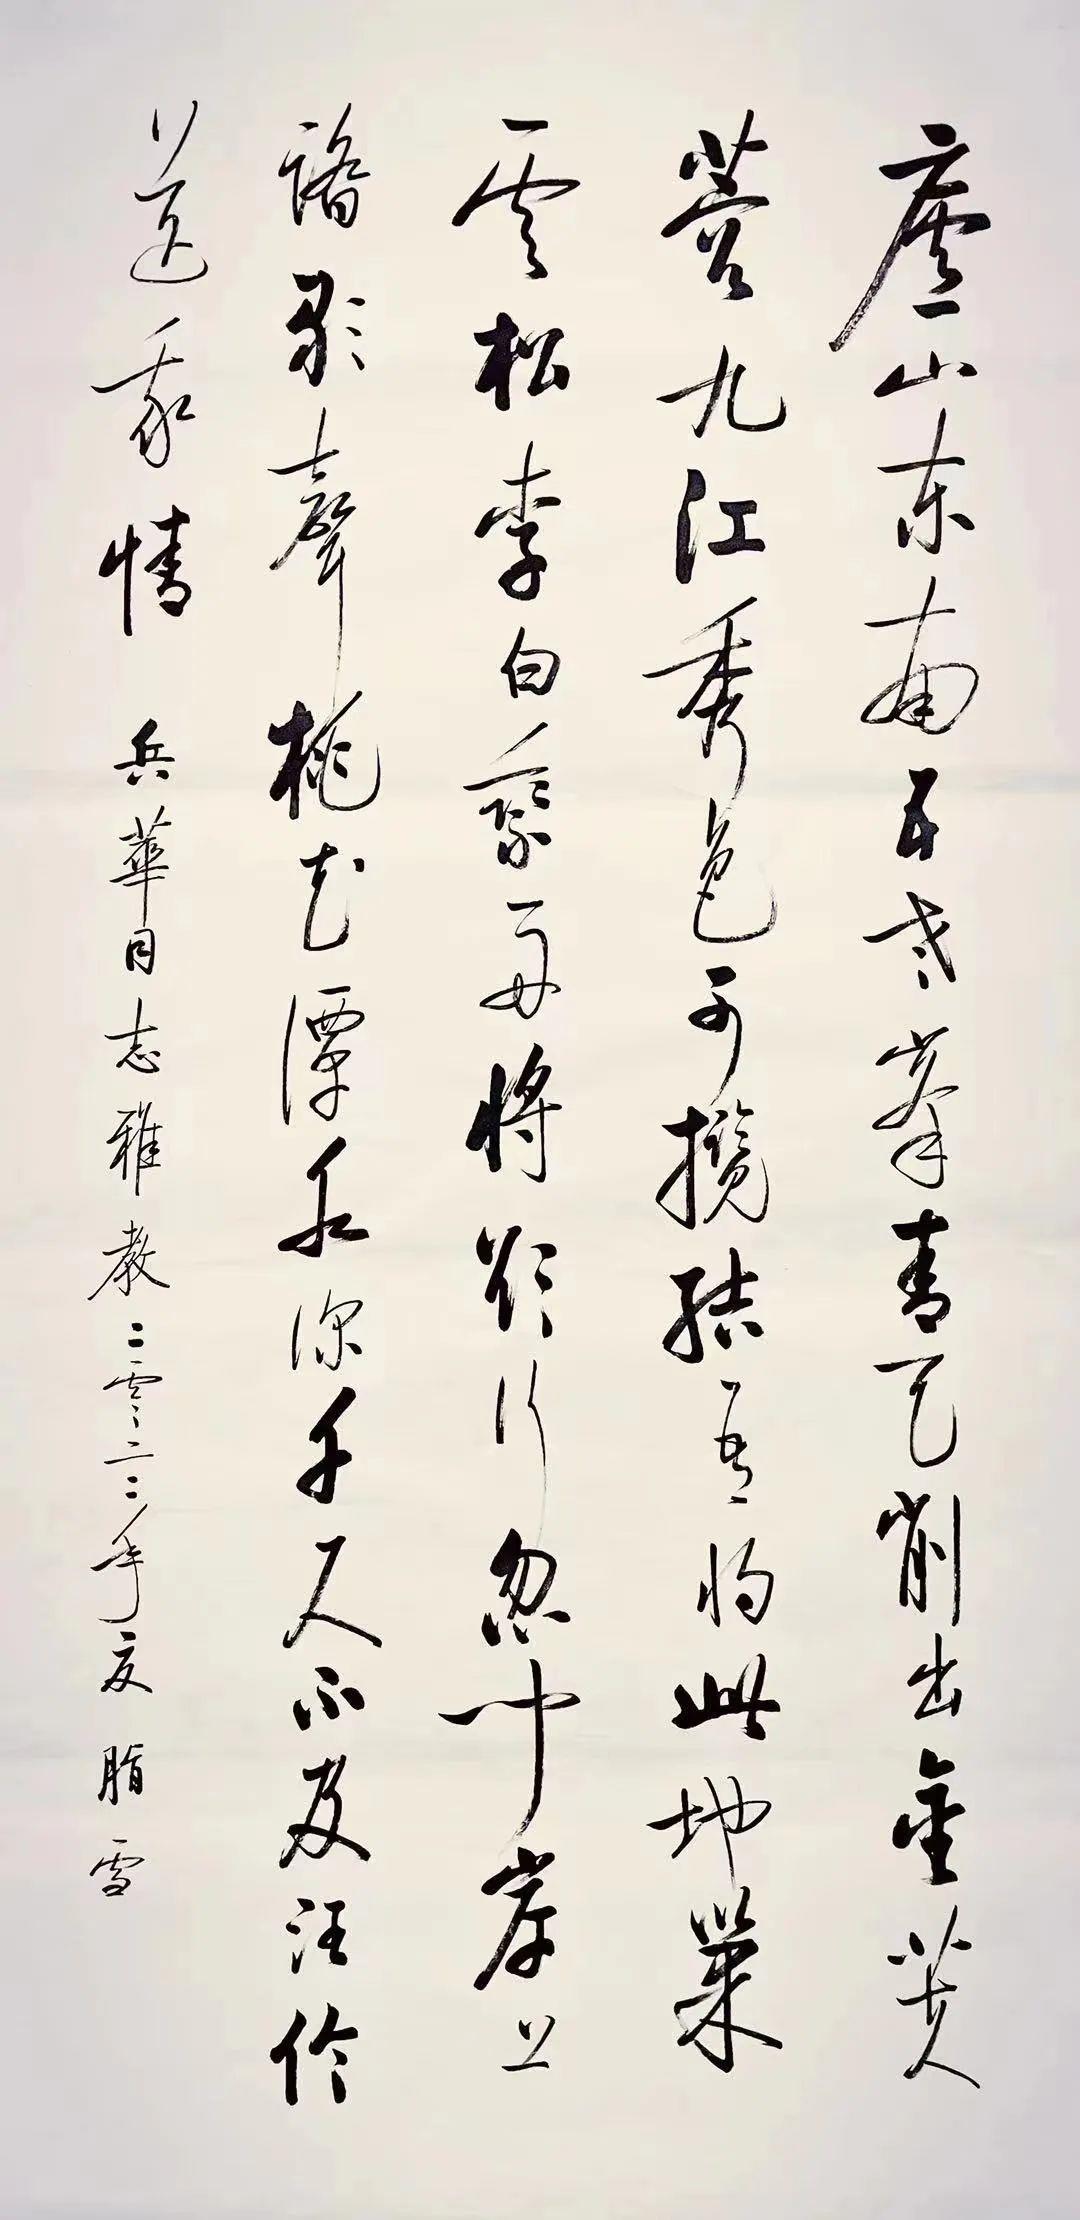 廬山东南五老峯青天削出金芙
蓉九江秀色可攬結吾将此地巢
雲松李白乘舟將欲行忽闻岸上
踏歌聲桃花潭水深千尺不及汪伦
送我情 兵華同志雅教二零二二年夏 脂雪